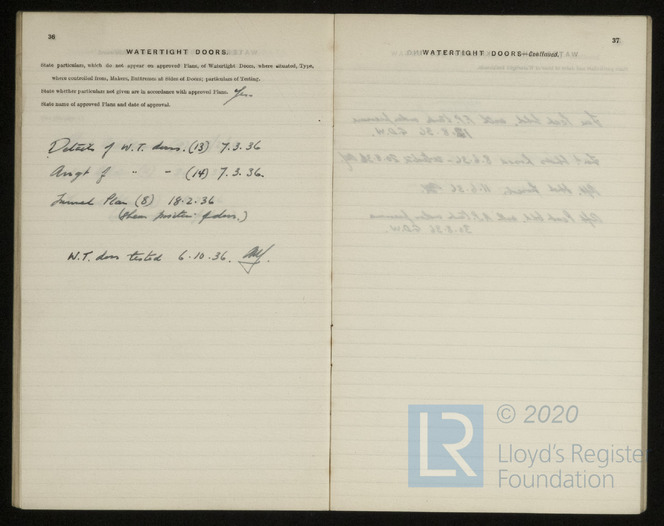 36
WATERTIGHT DOORS.
State particulars, which do not appear on approved Plans, of Watertight Doors, where situated, Type,
where controlled from, Makers, Differences at Sides of Doors; particulars of Testing.
State whether particulars not given are in accordance with approved Plans. Yes
State name of approved Plans and date of approval.
Details of W.T. doors. (13) 7.3.36
Arrgt of " " (14) 7.3.36.
Tunnel Plan (8) 18.2.36
(shews position of doors.)
W.T. doors tested 6.10.36.
37
WATERTIGHT DOORS—Continued.
LR © 2020
Lloyd's Register
Foundation